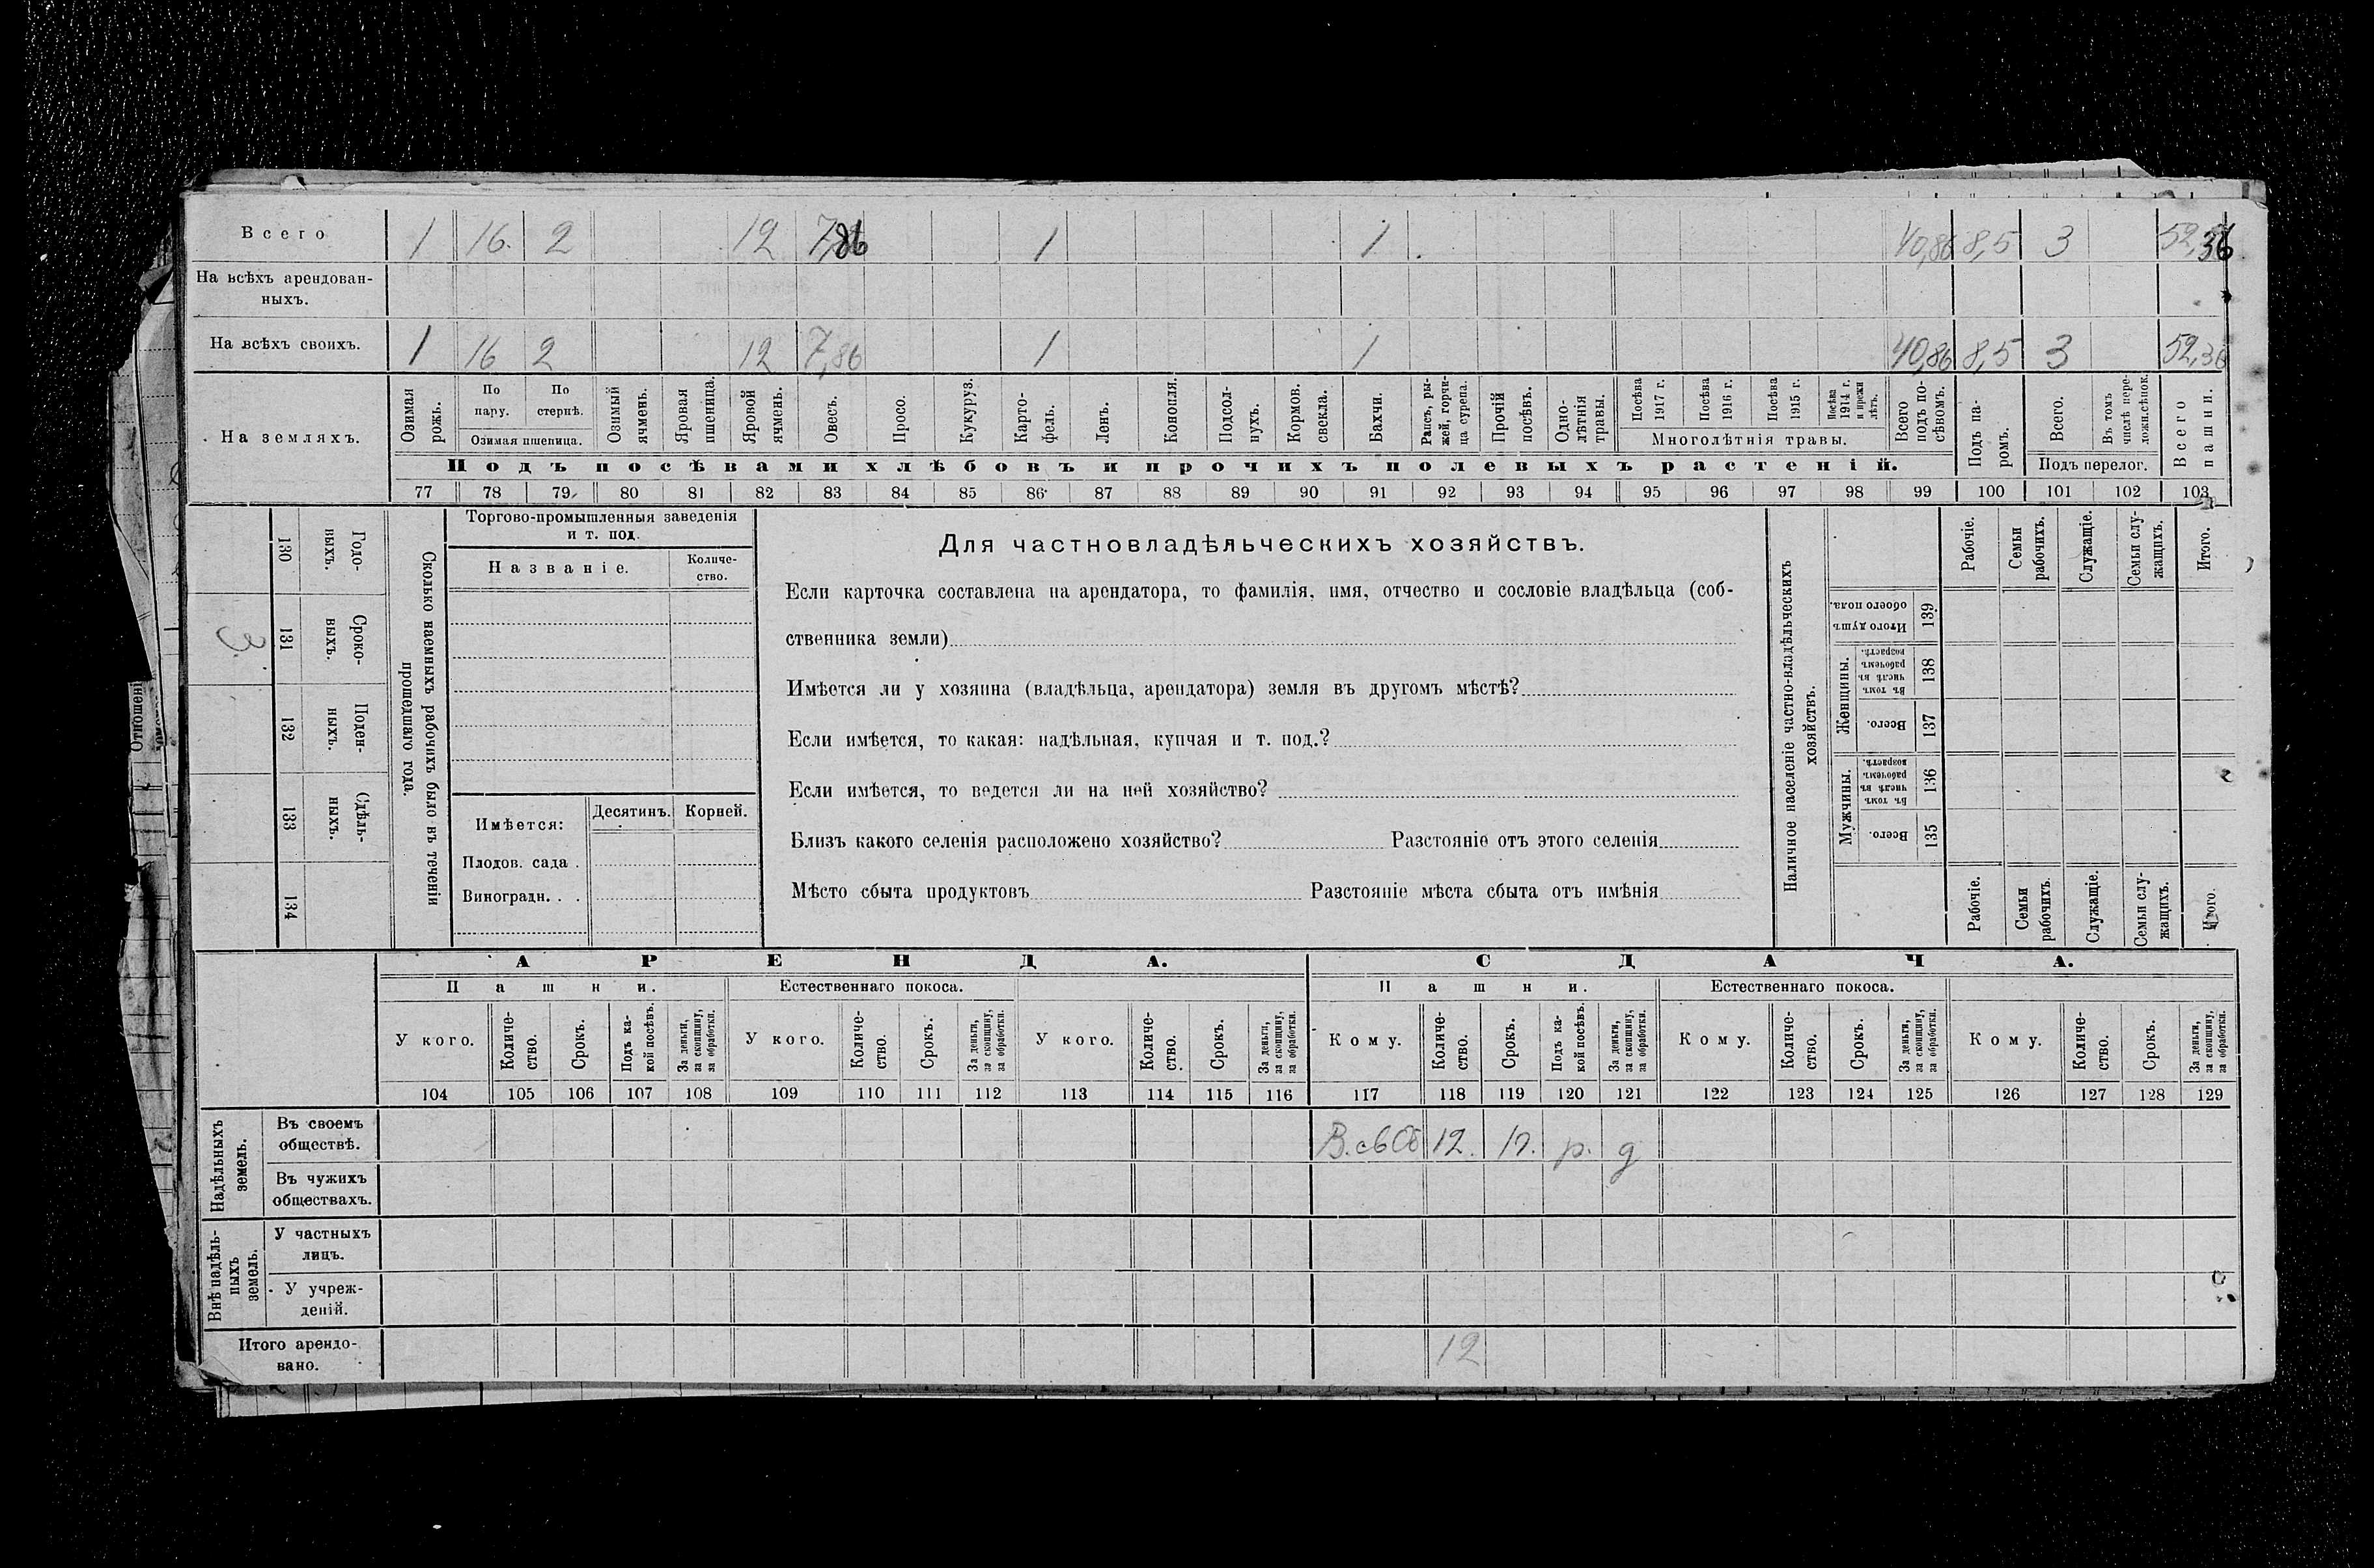 Всего 1 16. 2 12 7,86 1 1 40,86 8,5 3 52,36
На всѣхъ арендован-
ныхъ.
На всѣхъ своихъ. 1 16 2 12 7,86 1 1 40,86 8,5 3 52,36
На земляхъ.
Озимая рожь.
По пару.
По стернѣ.
Озимая пшеница.
Озимый ячмень.
Яровая пшеница.
Яровой ячмень.
Овесъ.
Просо.
Кукуруз.
Карто-
фель.
Ленъ.
Конопля.
Подсол-
нухъ.
Кормов. свекла.
Бахчи.
Рапсъ, ры-
жей, горчи-
ца сурепа.
Прочій посѣвъ.
Одно-
лѣтнія травы.
Посѣва 1917 г.
Посѣва 1916 г.
Посѣва 1915 г.
Посѣва 1914 г. и прежн лѣтъ.
Многолѣтнія травы.
Всего подъ по-
сѣвомъ.
Подъ па-
ромъ.
Всего.
Въ томъ числѣ пере-
ложн.сѣнок.
Подъ перелог.
Всего пашни.
Подъ посѣвами хлѣбовъ и прочихъ полевыхъ растеній.
77 78 79 80 81 82 83 84 85 86 87 88 89 90 91 92 93 94 95 96 97 98 99 100 101 102 103
Сколько наемныхъ рабочихъ было въ теченіи
прошедшаго года.
Годо-
выхъ.
130
Сроко-
выхъ.
131
3.
Поден-
ныхъ.
132
Сдѣль-
ныхъ.
133
134
Торгово-промышленныя заведенія
и т. под.
Названіе.
Количе-
ство.
Имѣется:
Десятинъ. Корней.
Плодов. сада .
Виноградн. . .
Для частновладѣльческихъ хозяйствъ.
Если карточка составлена на арендатора, то фамилія, имя, отчество и сословіе владѣльца (соб-
ственника земли)
Имѣется ли у хозяина (владѣльца, арендатора) земля въ другомъ мѣстѣ?
Если имѣется, то какая: надѣльная, купчая и т. под.?
Если имѣется, то ведется ли на ней хозяйство?
Близъ какого селенія расположено хозяйство? Разстояніе отъ этого селенія
Мѣсто сбыта продуктовъ Разстояніе мѣста сбыта отъ имѣнія
Наличное населеніе частно-владѣльческихъ
хозяйствъ.
Рабочіе.
Семьи рабочихъ.
Служащіе.
Семьи слу-
жащихъ.
Итого.
Итого душъ обоего пола.
139
Женщины.
Въ томъ числѣ въ рабочемъ возрастѣ.
138
Всего.
137
Мужчины.
Въ томъ числѣ въ рабочемъ возрастѣ.
136
Всего.
135
Рабочіе.
Семьи рабочихъ.
Служащіе.
Семьи слу-
жащихъ.
Итого.
АРЕНДА. СДАЧА.
Пашни. Естественнаго покоса. Пашни. Естественнаго покоса.
У кого.
Количе-
ство.
Срокъ.
Подъ ка-
кой посѣвъ.
За деньги, за скопщину, за обработки.
У кого.
Количе-
ство.
Срокъ.
За деньги, за скопщину, за обработки.
У кого.
Количе-
ство.
Срокъ.
За деньги, за скопщину, за обработки.
Кому.
Количе-
ство.
Срокъ.
Подъ ка-
кой посѣвъ.
За деньги, за скопщину, за обработки.
Кому.
Количе-
ство.
Срокъ.
За деньги, за скопщину, за обработки.
Кому.
Количе-
ство.
Срокъ.
За деньги, за скопщину, за обработки.
104 105 106 107 108 109 110 111 112 113 114 115 116 117 118 119 120 121 122 123 124 125 126 127 128 129
Надѣльныхъ
земель.
Въ своемъ
обществѣ.
В. свОб 12. р. д
Въ чужихъ
обществахъ.
Внѣ надѣль-
ныхъ
земель.
У частныхъ
лицъ.
У учреж-
деній.
Итого арендо-
вано.
12
Отношені